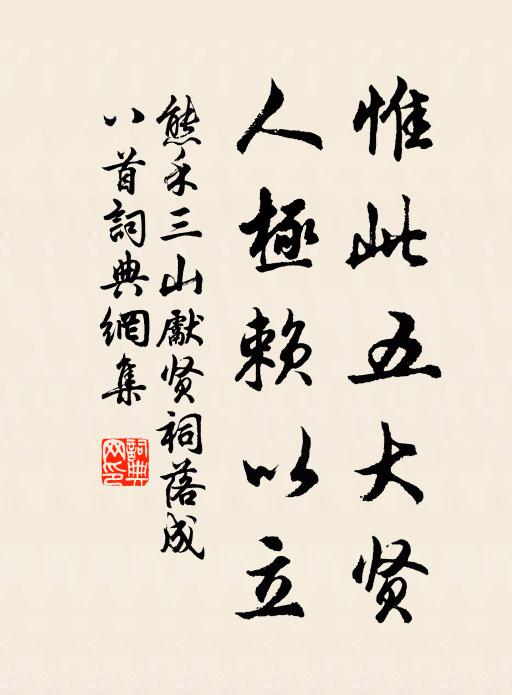 惟此五大贤
人極赖以立
熊禾三山獻贤祠落成
八首詞典網集
詞典
网印